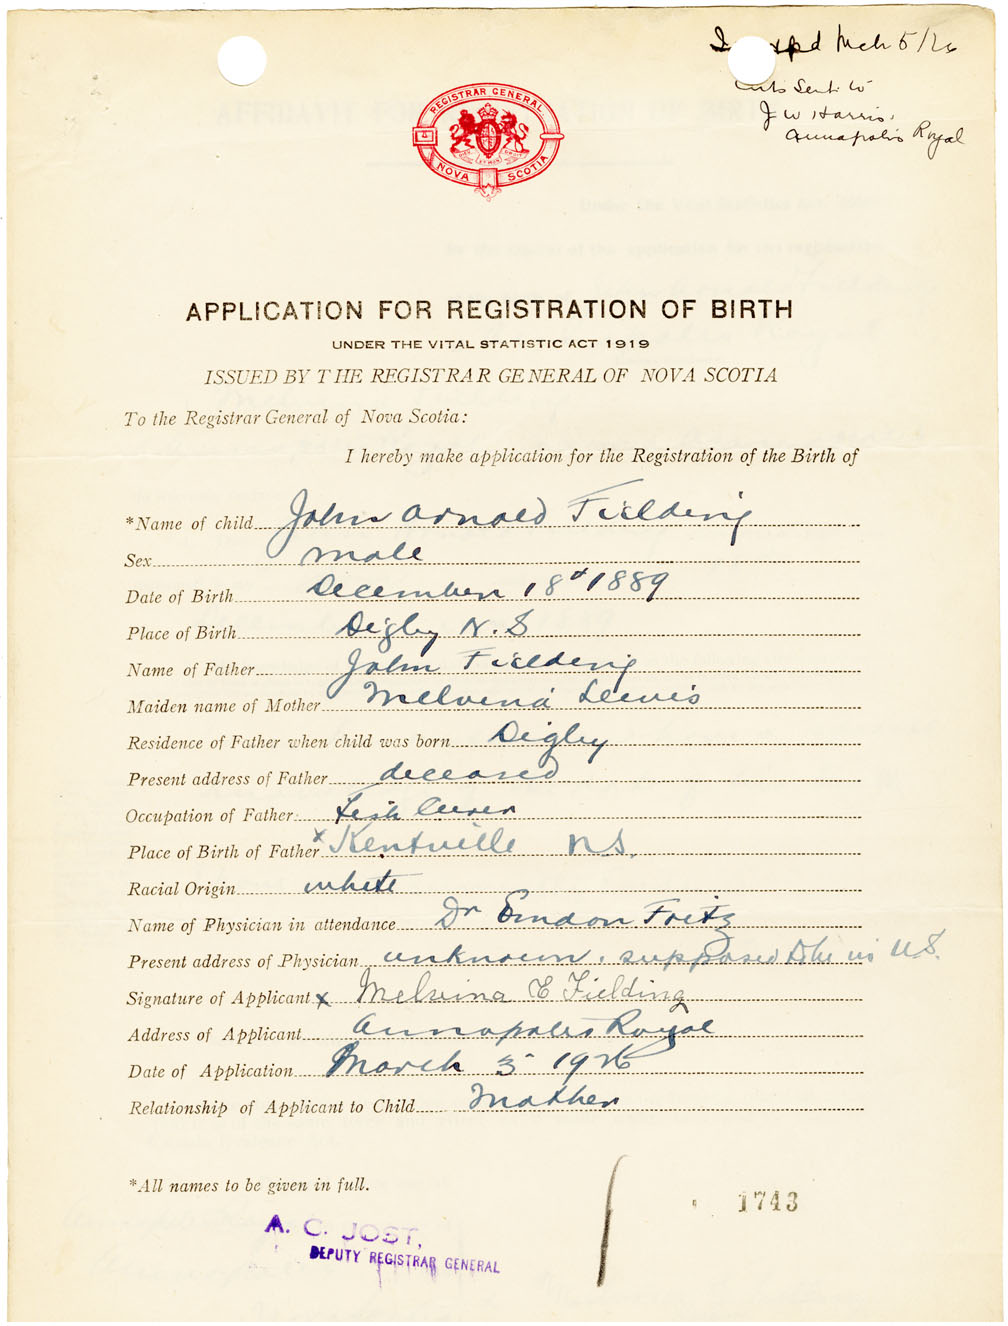 expd Mch 5/26
Certs Sent to
J W Harris,
Annapolis Royal
REGISTRAR GENERAL
NOVA SCOTIA
APPLICATION FOR REGISTRATION OF BIRTH
UNDER THE VITAL STATISTIC ACT 1919
ISSUED BY THE REGISTRAR GENERAL OF NOVA SCOTIA
To the Registrar General of Nova Scotia:
I hereby make application for the Registration of the Birth of
*Name of child John Arnold Fielding
Sex male
Date of Birth December 18th 1889
Place of Birth Digby N.S
Name of Father John Fielding
Maiden name of Mother Melvina Lewis
Residence of Father when child was born Digby
Present address of Father deceased
Occupation of Father: Fish Curer
Place of Birth of Father x Kentville N.S.
Racial Origin white
Name of Physician in attendance Dr Fritz
Present address of Physician unknown. supposed to be in U.S.
Signature of Applicant x Melvina E Fielding
Address of Applicant Annapolis Royal
Date of Application March 3 1926
Relationship of Applicant to Child Mother
*All names to be given in full.
1743
A. C. JOST,
DEPUTY REGISTRAR GENERAL